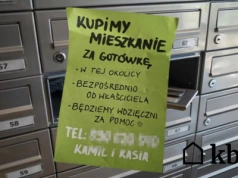 KUPIMY
MIESZKANIE
ZA GOTÓWKĘ
- W TEJ OKOLICY
- BEZPOŚREDNIO
OD WŁAŚCICIELA
- BĘDZIEMY WDZIĘCZNI
ZA POMOC ☺
TEL:
KAMIL I KASIA
57
58
kb